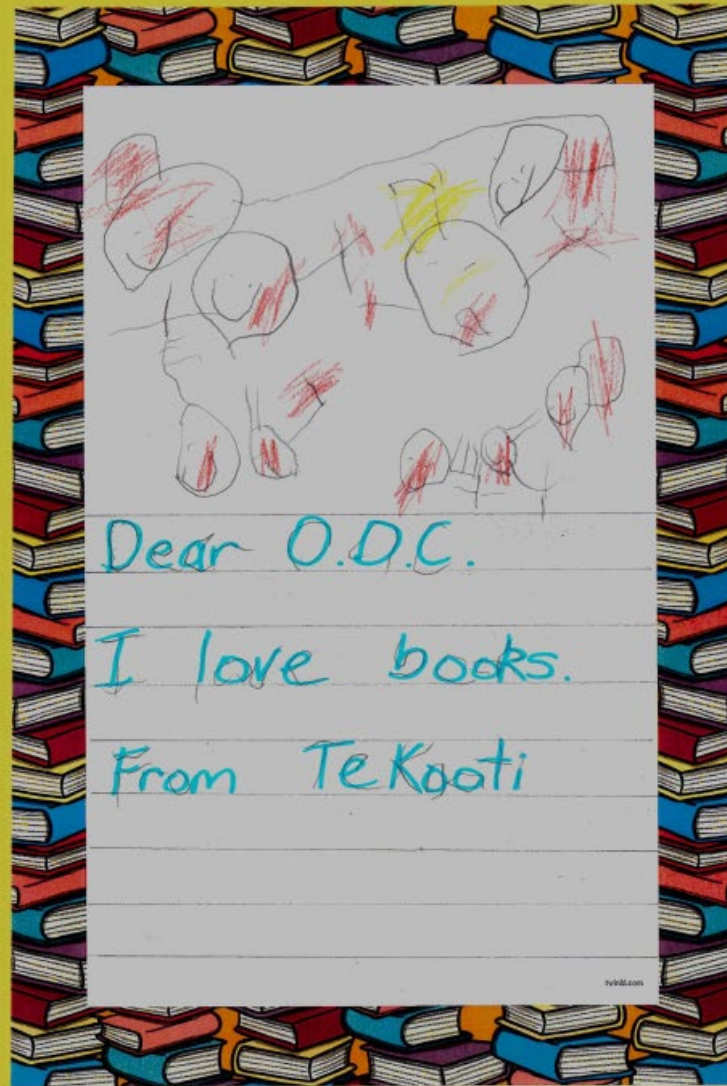 Dear O.D.C.
I love books.
From Te Kooti
twinkl.com